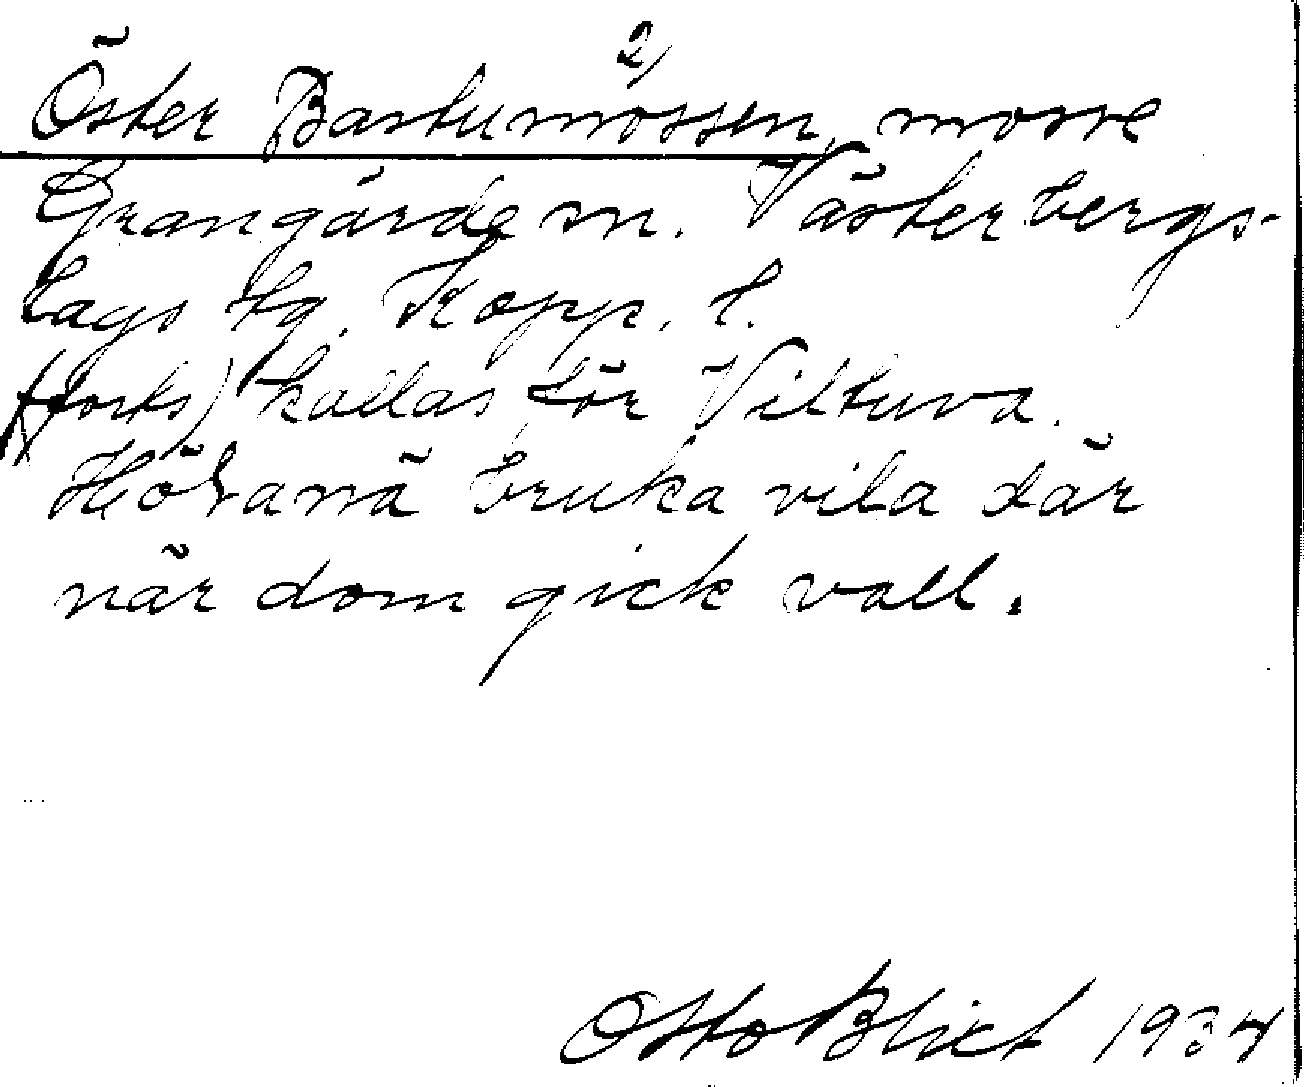 2)
Öster Bastumossen, mosse
Grangärde sn. Västerbergs-
lags tg. Kopp. l.
(forts) kallas för Viltuva.
när dom gick vall.
Otto Blixt 1934